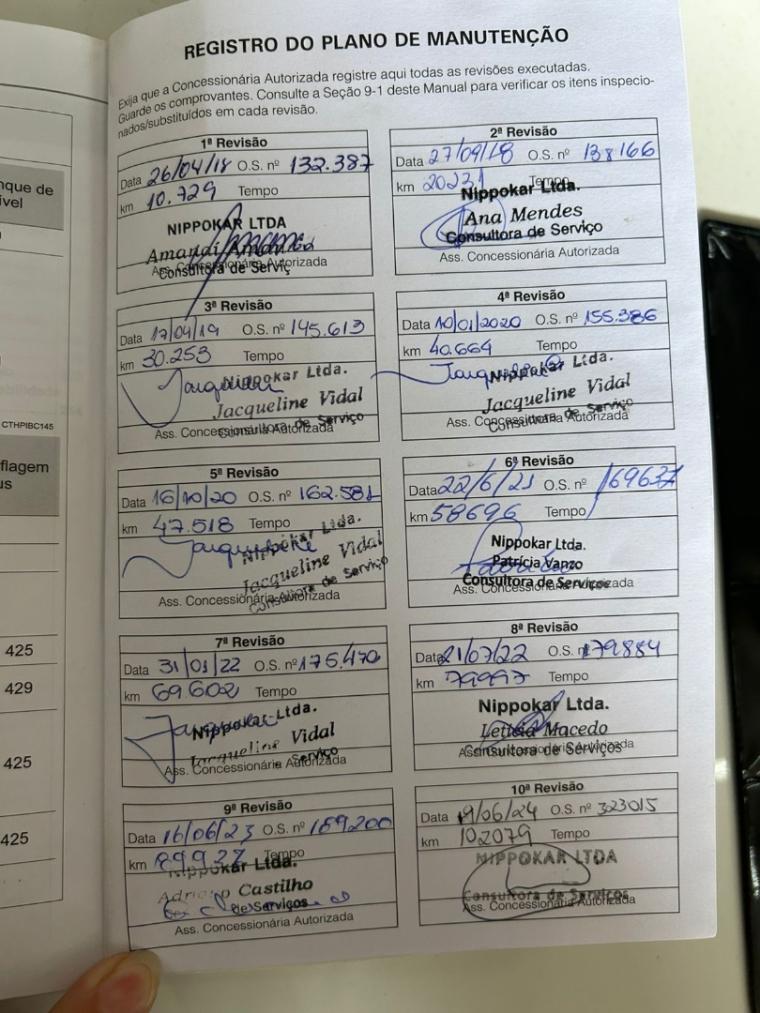 REGISTRO DO PLANO DE MANUTENÇÃO
Exija que a Concessionária Autorizada registre aqui todas as revisões executadas.
Guarde os comprovantes. Consulte a Seção 9-1 deste Manual para verificar os itens inspecio-
nados/substituídos em cada revisão.
1ª Revisão
Data 26/04/18 O.S. nº 132.387
km 10.729 Tempo
NIPPOKAR LTDA
Consultora de Serviç
Ass. Concessionária Autorizada
2ª Revisão
Data 27/09/18 O.S. nº 138166
km 20231 Tempo
Nippokar Ltda.
Ana Mendes
Consultora de Serviço
Ass. Concessionária Autorizada
3ª Revisão
Data 17/04/19 O.S. nº 145.613
km 30.253 Tempo
Nippokar Ltda.
Jacqueline Vidal
Consultora de Serviço
Ass. Concessionária Autorizada
4ª Revisão
Data 10/01/2020 O.S. nº 155.386
km 40.664 Tempo
Nippokar Ltda.
Jacqueline Vidal
Consultora de Serviço
Ass. Concessionária Autorizada
5ª Revisão
Data 16/10/20 O.S. nº 162.581
km 47.518 Tempo
Nippokar Ltda.
Jacqueline Vidal
Consultora de Serviço
Ass. Concessionária Autorizada
6ª Revisão
Data 22/6/21 O.S. nº 169637
km 58696 Tempo
Nippokar Ltda.
Patrícia Vanzo
Consultora de Serviços
Ass. Concessionária Autorizada
7ª Revisão
Data 31/01/22 O.S. nº 175.470
km 69.602 Tempo
Nippokar Ltda.
Jacqueline Vidal
Consultora de Serviço
Ass. Concessionária Autorizada
8ª Revisão
Data 21/07/22 O.S. nº 179884
km 79997 Tempo
Nippokar Ltda.
Letícia Macedo
Consultora de Serviços
Ass. Concessionária Autorizada
9ª Revisão
Data 16/06/23 O.S. nº 189200
km 89.927 Tempo
Nippokar Ltda.
Castilho
de Serviços
Ass. Concessionária Autorizada
10ª Revisão
Data 19/06/24 O.S. nº 323015
km 102079 Tempo
NIPPOKAR LTDA
Consultora de Serviços
Ass. Concessionária Autorizada
nque de
ível
CTHPIBC145
flagem
us
425
429
425
425